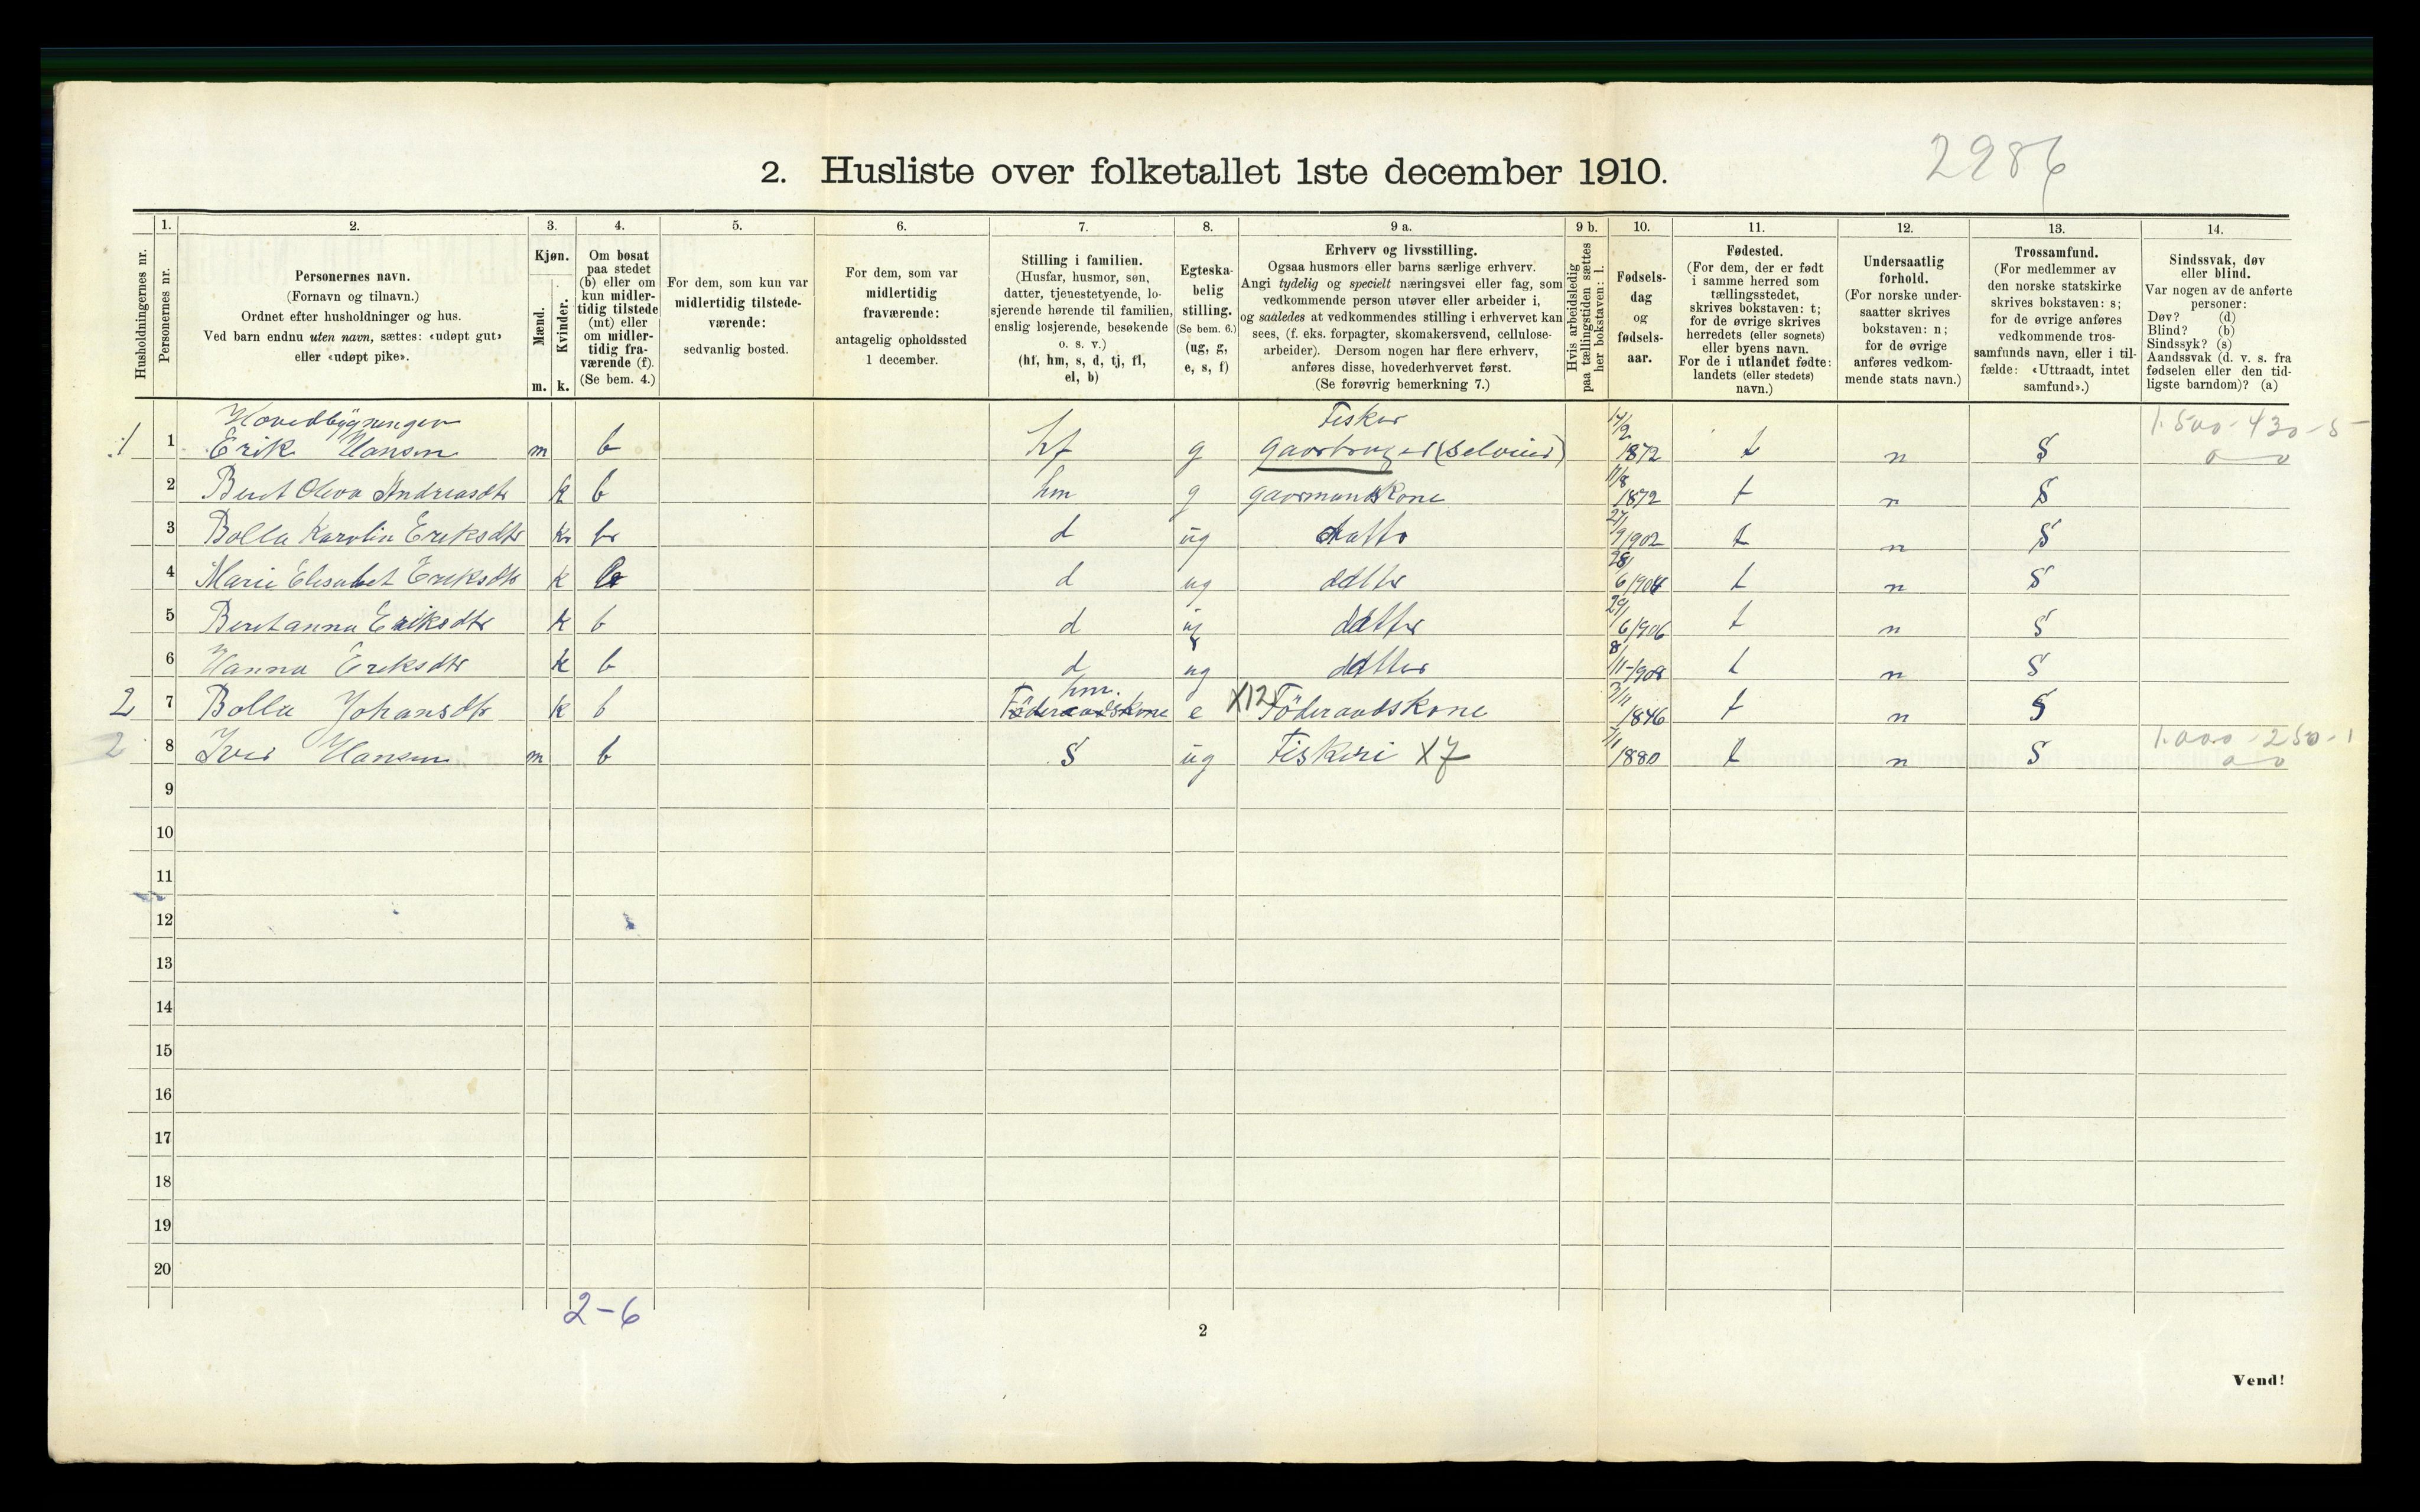 2986
2. Husliste over folketallet 1ste december 1910.
Husholdningernes nr.
1.
Personernes nr.
2.
Personernes navn.
(Fornavn og tilnavn.)
Ordnet efter husholdninger og hus.
Ved barn endnu uten navn, sættes: «udøpt gut»
eller «udøpt pike».
3.
Kjøn.
Mænd.
m.
Kvinder.
k.
4.
Om bosat
paa stedet
(b) eller om
kun midler-
tidig tilstede
(mt) eller
om midler-
tidig fra-
værende (f).
(Se bem. 4.)
5.
For dem, som kun var
midlertidig tilstede-
værende:
sedvanlig bosted.
6.
For dem, som var
midlertidig
fraværende:
antagelig opholdssted
1 december.
7.
Stilling i familien.
(Husfar, husmor, søn,
datter, tjenestetyende, lo-
sjerende hørende til familien,
enslig losjerende, besøkende
o. s. v.)
(hf, hm, s, d, tj, fl,
el, b)
8.
Egteska-
belig
stilling.
(Se bem. 6.)
(ug, g,
e, s, f)
9 a.
Erhverv og livsstilling.
Ogsaa husmors eller barns særlige erhverv.
Angi tydelig og specielt næringsvei eller fag, som
vedkommende person utøver eller arbeider i,
og saaledes at vedkommendes stilling i erhvervet kan
sees, (f. eks. forpagter, skomakersvend, cellulose-
arbeider). Dersom nogen har flere erhverv,
anføres disse, hovederhvervet først.
(Se forøvrig bemerkning 7.)
9 b.
Hvis arbeidsledig
paa tællingstiden sættes
her bokstaven: l.
10.
Fødsels-
dag
og
fødsels-
aar.
11.
Fødested.
(For dem, der er født
i samme herred som
tællingsstedet,
skrives bokstaven: t;
for de øvrige skrives
herredets (eller sognets)
eller byens navn.
For de i utlandet fødte:
landets (eller stedets)
navn.)
12.
Undersaatlig
forhold.
(For norske under-
saatter skrives
bokstaven: n;
for de øvrige
anføres vedkom-
mende stats navn.)
13.
Trossamfund.
(For medlemmer av
den norske statskirke
skrives bokstaven: s;
for de øvrige anføres
vedkommende tros-
samfunds navn, eller i til-
fælde: «Uttraadt, intet
samfund».)
14.
Sindssvak, døv
eller blind.
Var nogen av de anførte
personer:
Døv? (d)
Blind? (b)
Sindssyk? (s)
Aandssvak (d. v. s. fra
fødselen eller den tid-
ligste barndom)? (a)
Hovedbygningen Fisker 1.500-430-5
1 1 Erik Hansen m b hf g gaarbruger (selveier) 14/2 1872 t n S 0 0
2 Berit Oleva Andreasdtr k b hm g gaarmandskone 11/8 1872 t n S
3 Bolla Karolin Eriksdtr k b d ug datter 27/9 1902 t n S
4 Marie Elisabet Eriksdtr k b d ug datter 28/6 1904 t n S
5 Beritanna Eriksdtr k b d ug datter 29/6 1906 t n S
6 Hanna Eriksdtr k b d ug datter 8/11-1908 t n S
hm.
2 7 Bolla Johansdtr k b Föderaadskone e X12 Föderaadskone 1846 t n S
1.000-250-1
2 8 Iver Hansen m b S ug Fiskeri X7 1880 t n S 0 0
9
10
11
12
13
14
15
16
17
18
19
20
2-6
2
Vend!